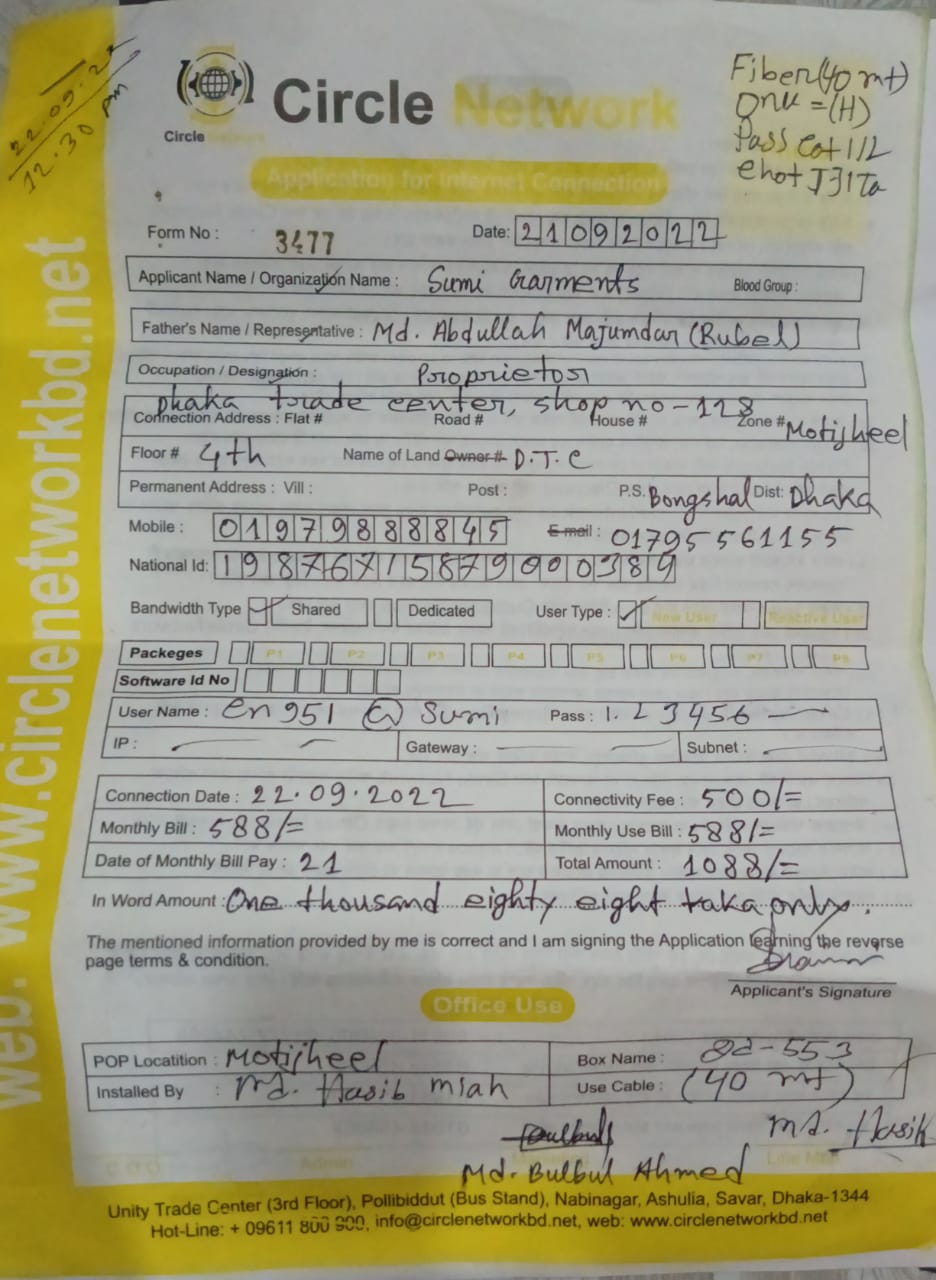 22.09.22
12.30 pm
Circle Network
Circle Network
Fiber (40 mt)
Onu = (H)
Pass
Application for Internet Connection
Form No : 3477 Date: 21092022
Applicant Name / Organization Name : Sumi Garments Blood Group :
Father's Name / Representative : Md. Abdullah Majumdar (Rubel)
Occupation / Designation : Proprietor
Dhaka trade center, shop no - 128
Connection Address : Flat # Road # House # Zone # Motijheel
Floor # 4th Name of Land Owner # D.T.C
Permanent Address : Vill : Post : P.S. Bongshal Dist: Dhaka
Mobile : 01979888845 E-mail : 01795561155
National Id: 19876715879000389
Bandwidth Type Shared Dedicated User Type : New User Reactive User
Packeges P1 P2 P3 P4 P5 P6 P7 P8
Software Id No
User Name : en951 @ Sumi Pass : 1.23456
IP : Gateway : Subnet :
Connection Date : 22.09.2022 Connectivity Fee : 500/=
Monthly Bill : 588/= Monthly Use Bill : 588/=
Date of Monthly Bill Pay : 21 Total Amount : 1088/=
In Word Amount : One thousand eighty eight taka only.
The mentioned information provided by me is correct and I am signing the Application learning the reverse
page terms & condition.
Applicant's Signature
Office Use
POP Locatition : Motijheel Box Name : 82-553
Installed By : Md. Hasib miah Use Cable : (40 mt)
Md. Hasib
Md. Bulbul Ahmed
Admin
Unity Trade Center (3rd Floor), Pollibiddut (Bus Stand), Nabinagar, Ashulia, Savar, Dhaka-1344
Hot-Line: + 09611 800 900, info@circlenetworkbd.net, web: www.circlenetworkbd.net
web: www.circlenetworkbd.net